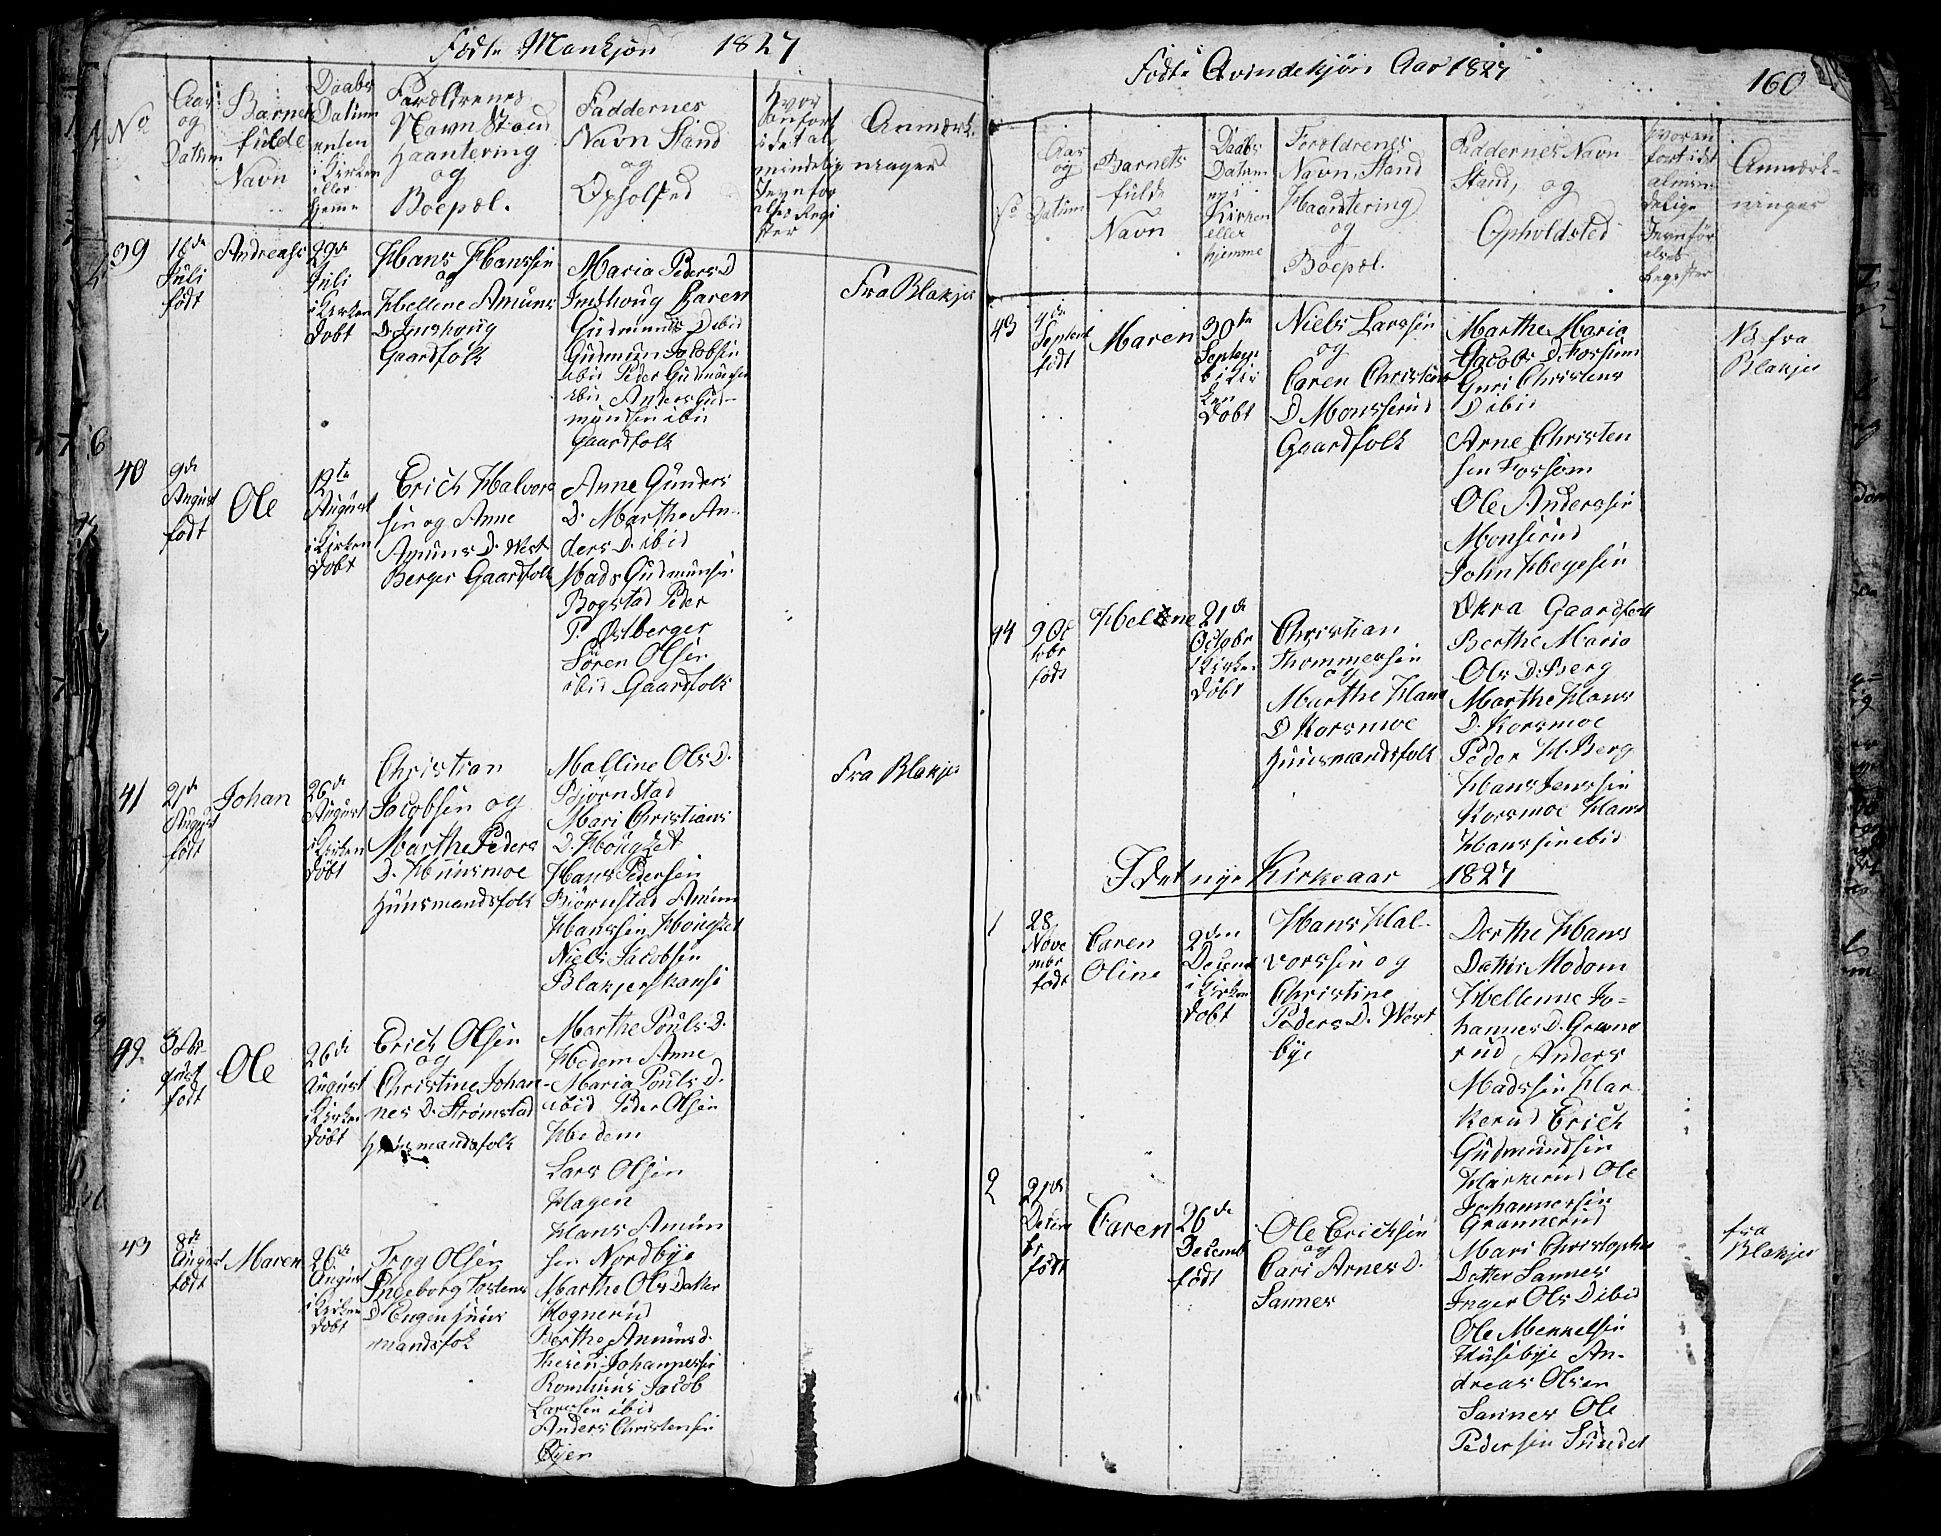 Födte Mankjön 1827
No
Aar og Datum
Barnets fulde Navn
Daabs Datum enten i Kirken eller hjeme
Forældrenes Navn Stand Haantering og Boepæl.
Faddernes Navn Stand og Opholsted
Hvor Anfört i det almindelig Jevnforelses Register
Anmærkninger
39
16de
Juli
födt
Andreas
29de
Juli
i Kirken
Döbt
Hans Hanssen
og
Hellene Amuns
D. Imshoug
Gaardfolk
Maria Peders D
Imshoug Karen
Gudmunds D ibid
Gudmun Jacobsen
ibid Peder Gudmunsen
ibid Anders Gud-
mundsen ibid
Gaardfolk
Fra Blakjer
40
9de
August
födt
Ole
12te
August
i Kirken
Döbt
Erich Halvor
sen og Anne
Amuns D. West
Berger Gaardfolk
Anne Gunders
D. Marthe An-
ders D. ibid
Mads Gudmunsen
Bogstad Peder
P. Østberger
Sören Olsen
ibid Gaardfolk
41
21de
August
födt
Johan
26de
August
i Kirken
Döbt
Christian
Jacobsen og
Marthe Peders
D. Huusmoe
Huusmandsfolk
Malline Ols D.
Björnstad
Mari Christians
D. Hougset
Hans Pedersen
Björnstad Amun
Hanssen Hougset
Niels Jacobsen
Blakjerskansi
Fra Blakjer
42
3 August
födt
Ole
26de
August
i Kirken
Döbt
Erich Olsen
og
Christine Johan-
nes D. Strömstad
Huusmandsfolk
Marthe Pouls D.
Hedem Anne
Maria Pouls D.
ibid Peder Olsen
Hedem
Lars Olsen
Hagen
Hans Amun
sen Nordbye
43
8de
August
födt
Maren
26de
August
i Kirken
Döbt
Trog Olsen
Ingeborg Tostens
D. Engen huus
mandsfok
Marthe Ols Datter
Hognerud
Berthe Amuns d.
Johannessen
Romhuus Jacob
Larssen ibid
Anders Christensen
Øien
Födte Qvindekjön Aar 1827
160
No
Aar og Datum
Barnets fulde Navn
Daabs Datum i Kirken eller hjemme
Forældrenes Navn, Stand Haantering og Boepæl.
Faddernes Navn Stand, og Opholdsted
Hvor anfört i det almindelige Jevnförelses Register
Anmærkninger
43
4de
Septembr
födt
Maren
30te
Septemb
i Kir
ken
Döbt
Niels Larssen
og
Caren Christens
D. Monsserud
Gaardfolk
Marthe Maria
Jacobs D. Fossum
Guri Christens
D ibid
Arne Christen
sen Fossom
Ole Anderssen
Monserud
John Hegesen
Økra Gaardfolk
NB fra
Blakjer
44
9 Oc
tobr
födt
Helene
21de
Octobr
i Kirken
Döbt
Christian
Thommessen
og
Marthe Hans
D Korsmoe
Huusmandsfolk
Berthe Maria
Ols D. Berg
Marthe Hans
D. Korsmoe
Peder H. Berg
Hans Jenssen
Korsmoe Hans
Hanssen ibid
I det nye Kirkeaar 1827
1
28
Nove
mbr
födt
Caren
Oline
2den
Decemb
i Kirken
Döbt
Hans Hal-
vorssen og
Christine
Peders D. West
bye
Dorthe Hans
Datter Modom
Hellenne Jo-
hannes D. Grane
rud Anders
Madssen Har
kerud Erich
Gudmundsen
Harkerud Ole
Johannessen
Grannerud
2
21de
Decem
br
födt
Caren
26de
Decemb
födt
Ole Ericksen
og
Cari Arnes D.
Sannes
Mari Christophers
Datter Sannes
Inger Ols D ibid
Ole Mekkelsen
Husebye An-
dreas Olsen
Sannes Ole
Pedersen Sundet
fra
Blakjer